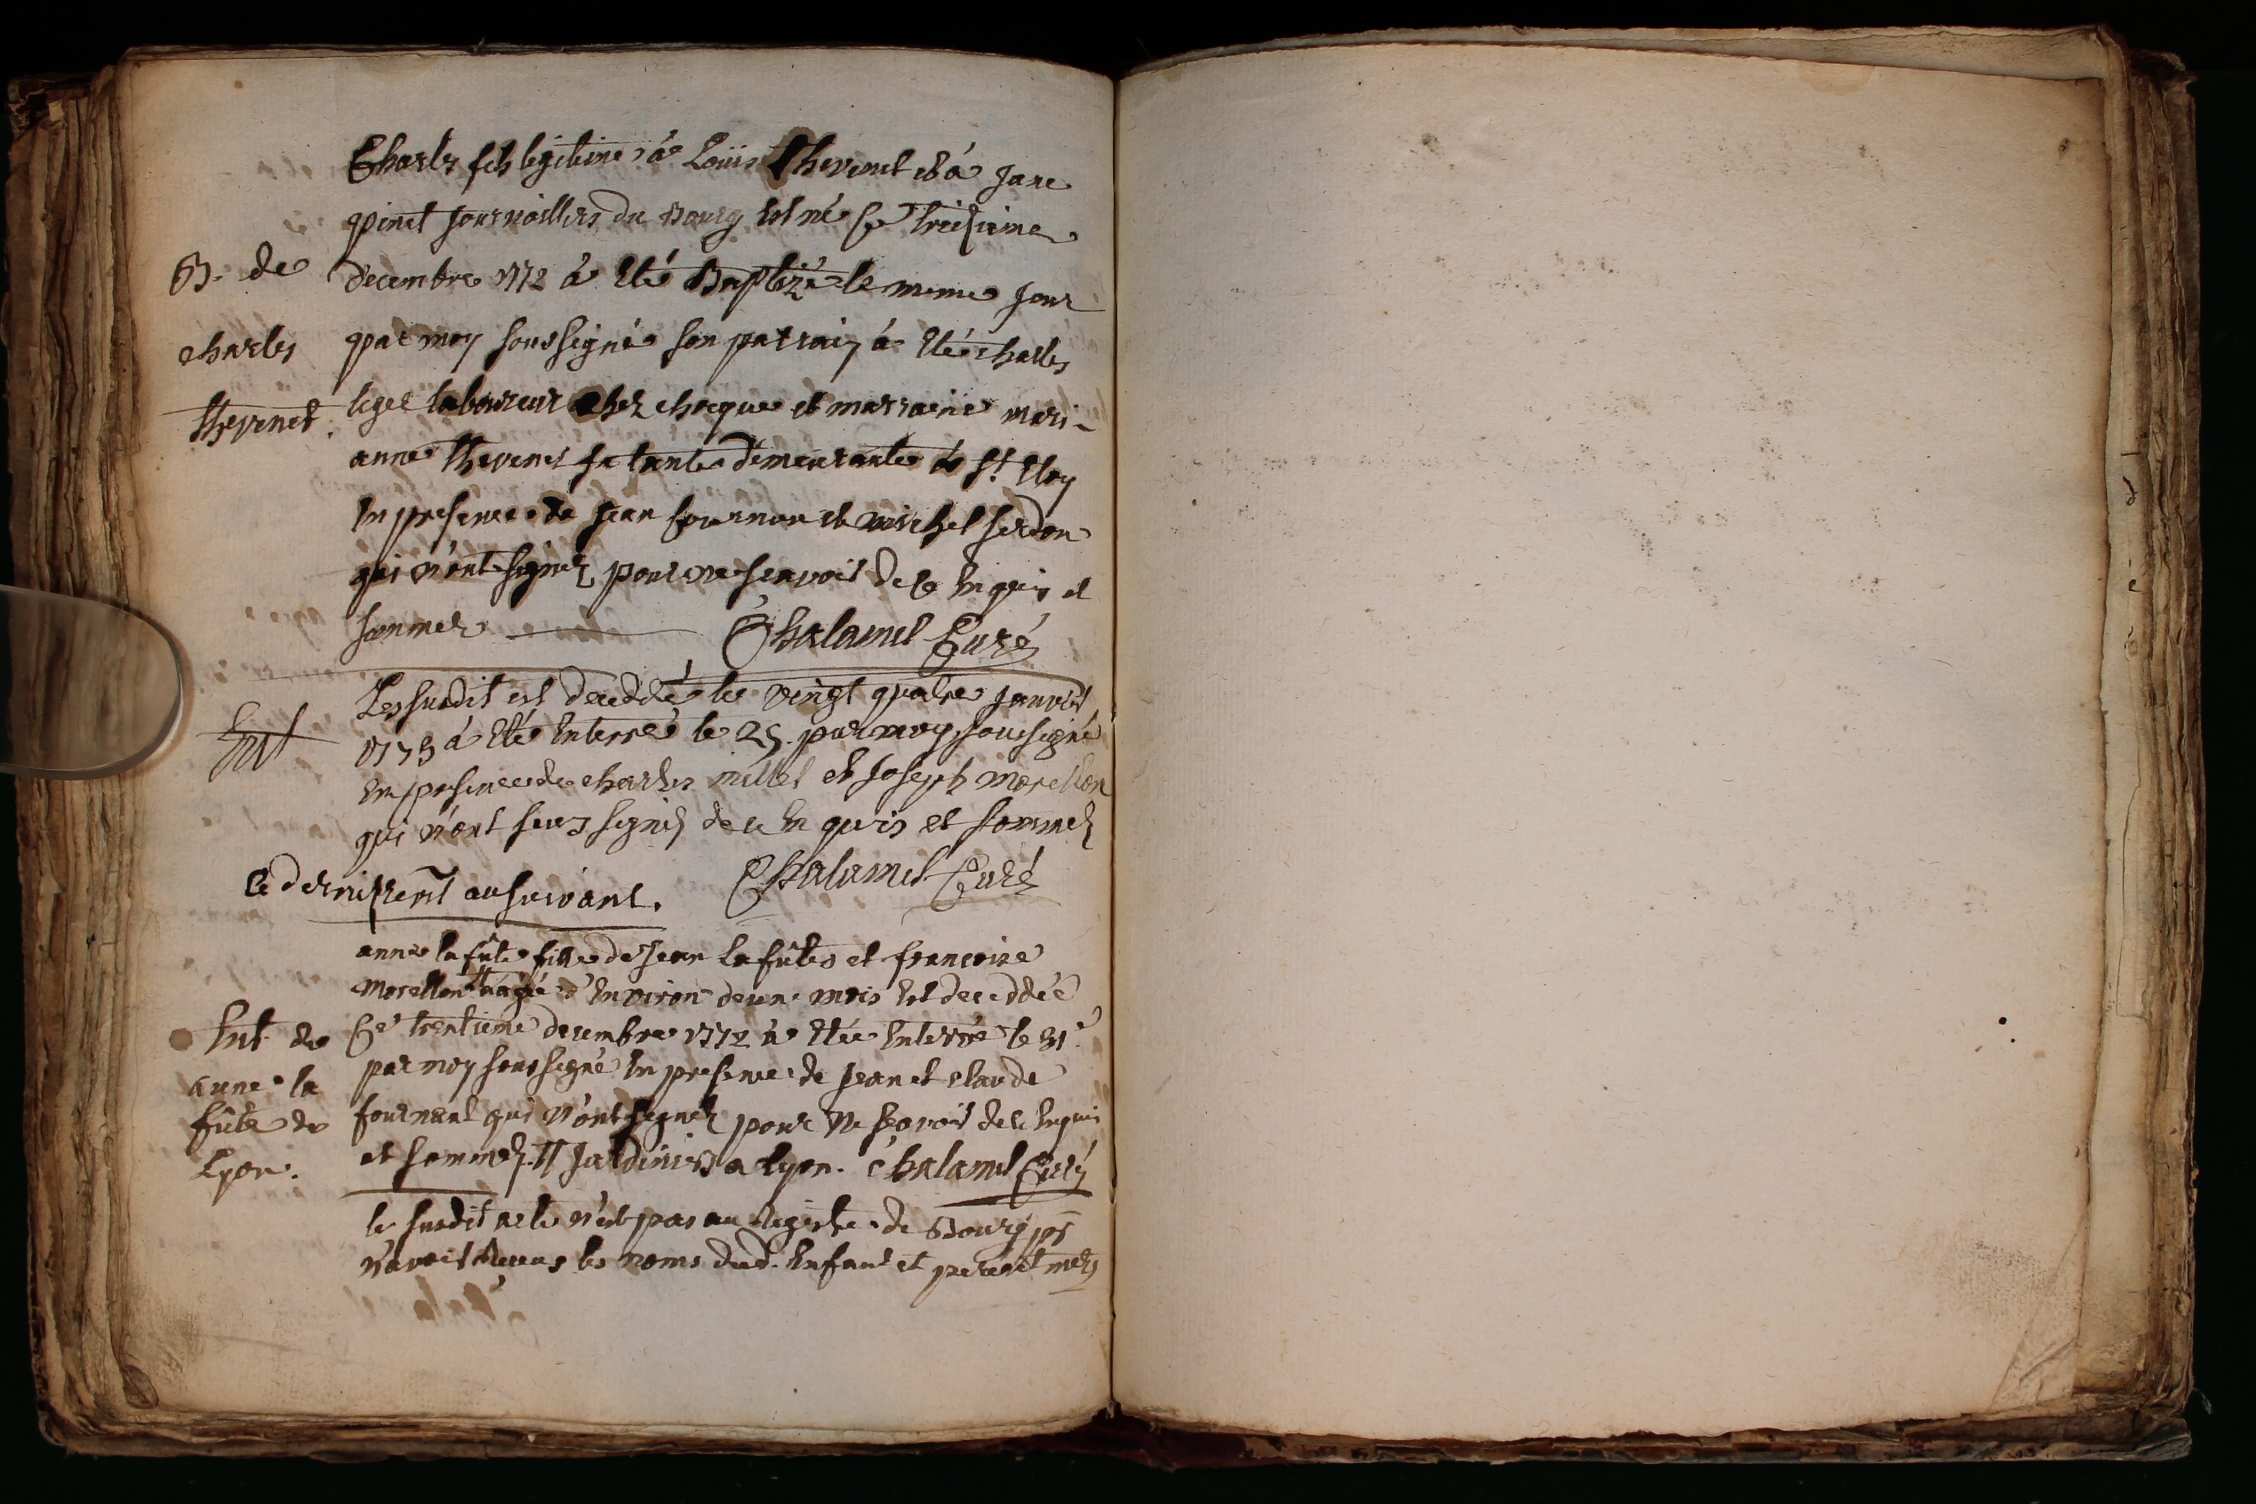 Charles fils legitime à Loüis thevenet et à Jane
pinet Journailliers du Bourg est né ce treizieme
B. de
decembre 1772 à eté Baptizé le meme jour
charles
par moy soussigné son parrain à eté charles
thevenet.
leger laboureur chez choque et marraine mari-
anne thevenet sa tante demeurante à St. eloy
en presence de jean fournon et michel serdon
qui n'ont signez pour ne scavoir de ce enquis et
sommez Chalamel Curé
Le susdit est deceddé le vingt quatre janvier
Ent
1773 à eté enterré le 25. par moy soussigné
en presence de charles millet et Joseph morellon
qui n'ont sceu signéz de ce enquis et sommez
Chalamel Curé
le dernier au suivant.
anne la fûte fille de Jean la fûte et françoise
morellon # agée d'environ deun mois est deceddée
Ent. de
ce trentieme decembre 1772 à etée enterrée le 31e
anne la
par moy soussigné en presence de jean et claude
fûte de
fournand qui n'ont signez pour ne scavoir de ce enquis
Lyon.
et sommez # Jardiniers a lyon. Chalamel Curé
le susdit acte n'est pas au registre de Bourg pr
n'avoir les noms dud. enfant et pere et mere